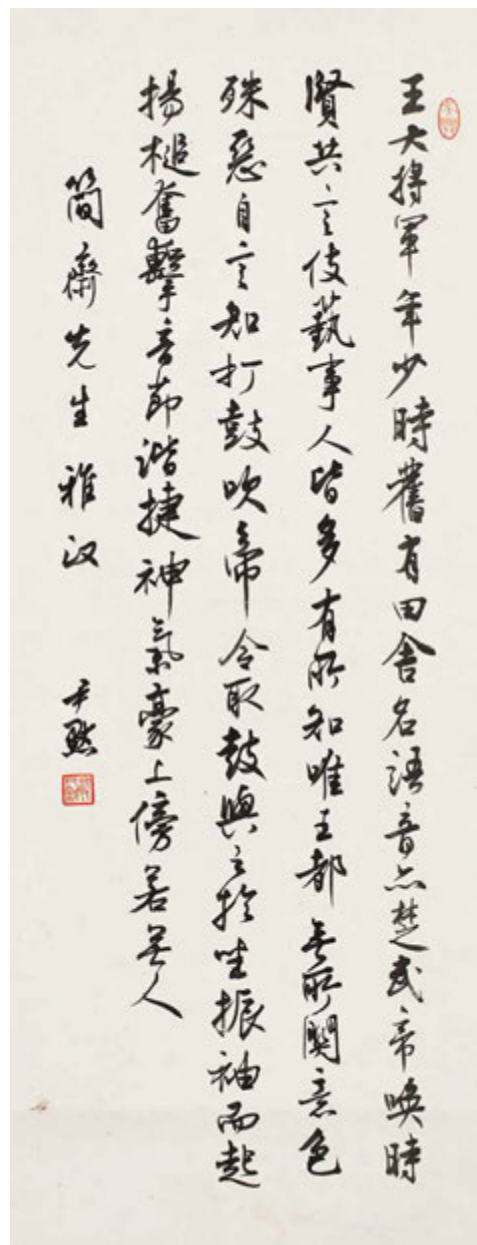 王大將軍年少時舊有田舍名語音亦楚武帝喚時
賢共言伎藝事人皆多有所知唯王都無所關意色
殊惡自言知打鼓吹帝令取鼓與之於坐振袖而起
揚槌奮擊音節諧捷神氣豪上傍若無人
簡齋先生雅 尹默